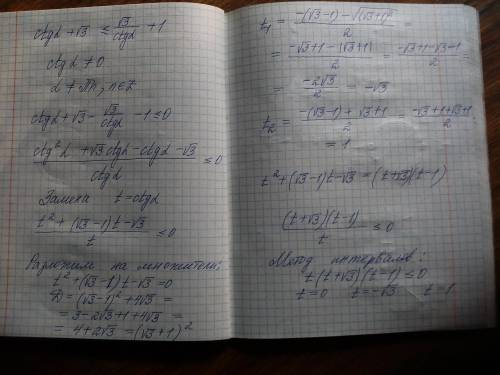 ctgα + √3 ≤ √3/ctgα + 1
ctgα ≠ 0
α ≠ πn, n∈Z
ctgα + √3 - √3/ctgα - 1 ≤ 0
(ctg²α + √3 ctgα - ctgα - √3)/ctgα ≤ 0
Замена t = ctgα
(t² + (√3-1)t - √3)/t ≤ 0
Разложим на множители:
t² + (√3-1)t - √3 = 0
D = (√3-1)² + 4√3 =
= 3 - 2√3 + 1 + 4√3 =
= 4 + 2√3 = (√3+1)²
t₁ = (-(√3-1) - √(√3+1)²)/2 =
= (-√3+1-|√3+1|)/2 = (-√3+1-√3-1)/2 =
= -2√3/2 = -√3
t₂ = (-(√3-1) + √3+1)/2 = (-√3+1+√3+1)/2
= 1
t² + (√3-1)t - √3 = (t+√3)(t-1)
(t+√3)(t-1)/t ≤ 0
Метод интервалов:
t(t+√3)(t-1) ≤ 0
t=0 t=-√3 t=1